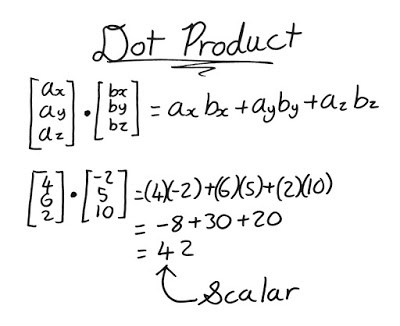 Dot Product
[ax ay az] • [bx by bz] = axbx + ayby + azbz
[4 6 2] • [-2 5 10] = (4)(-2)+(6)(5)+(2)(10)
= -8+30+20
= 42
Scalar